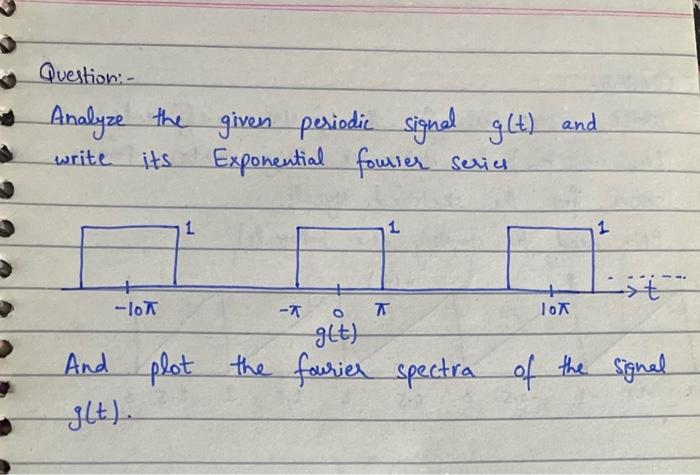 Question:-
Analyze the given periodic signal g(t) and
write its Exponential fourier series
1 1 1
-10π -π 0 π 10π → t
g(t)
And plot the fourier spectra of the signal
g(t).